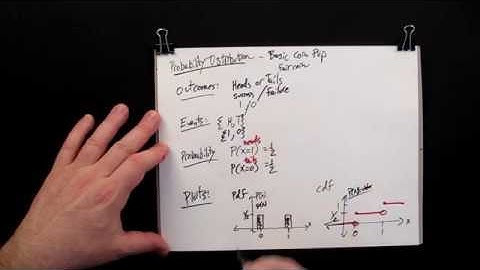 Probability Distribution - Basic Coin Flip
Fair coin
Outcomes: Heads or Tails
success / Failure
1 / 0
Events: {H, T}
{1, 0}
heads
Probability P(X=1) = 1/2
tails
P(X=0) = 1/2
Plots: pdf cdf
1/2
0 1 x
0 1 x